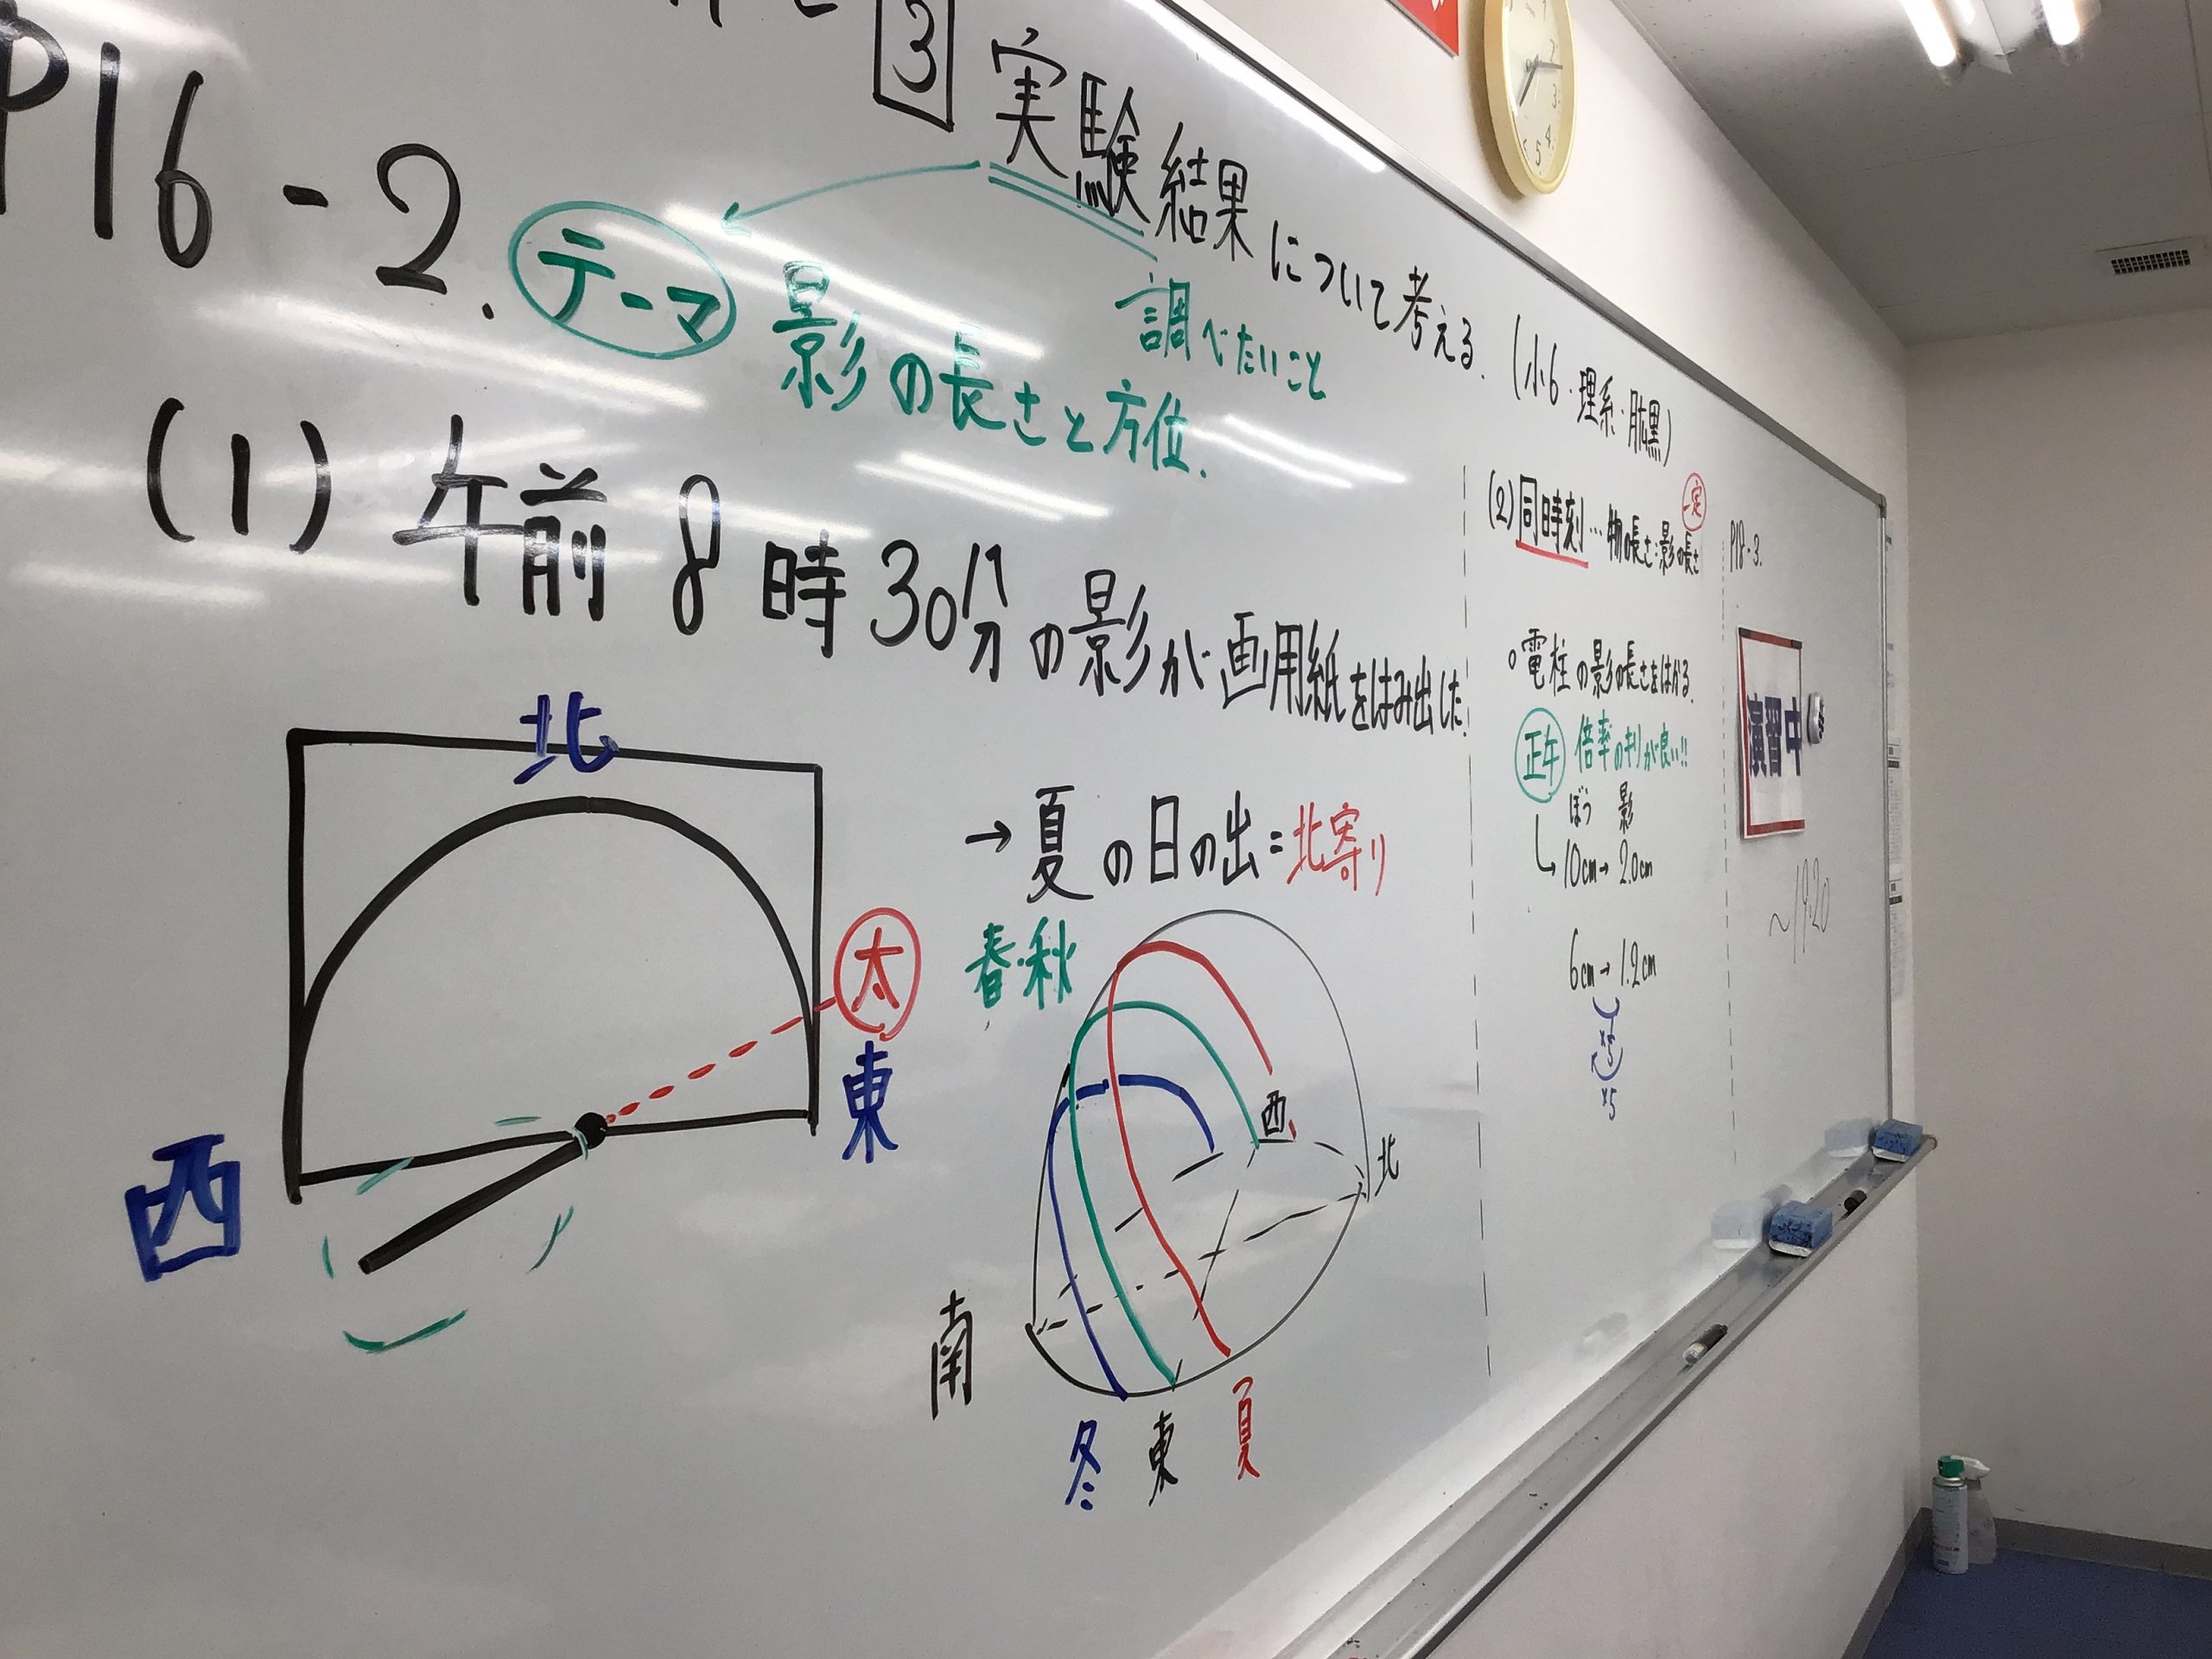 3 実験結果について考える.(小6・理系・肱黒)
P16-2. テーマ 影の長さと方位.
調べたいこと
(1) 午前8時30分の影が画用紙をはみ出した.
北
西
東
太
→夏の日の出=北寄り
春・秋
西
北
南
冬
東
夏
(2) 同時刻…物の長さ:影の長さ
一定
。電柱の影の長さをはかる.
正午 倍率のキリが良い!!
ぼう 影
10cm→2.0cm
6cm→1.2cm
×5
P18-3.
演習中
~19:20